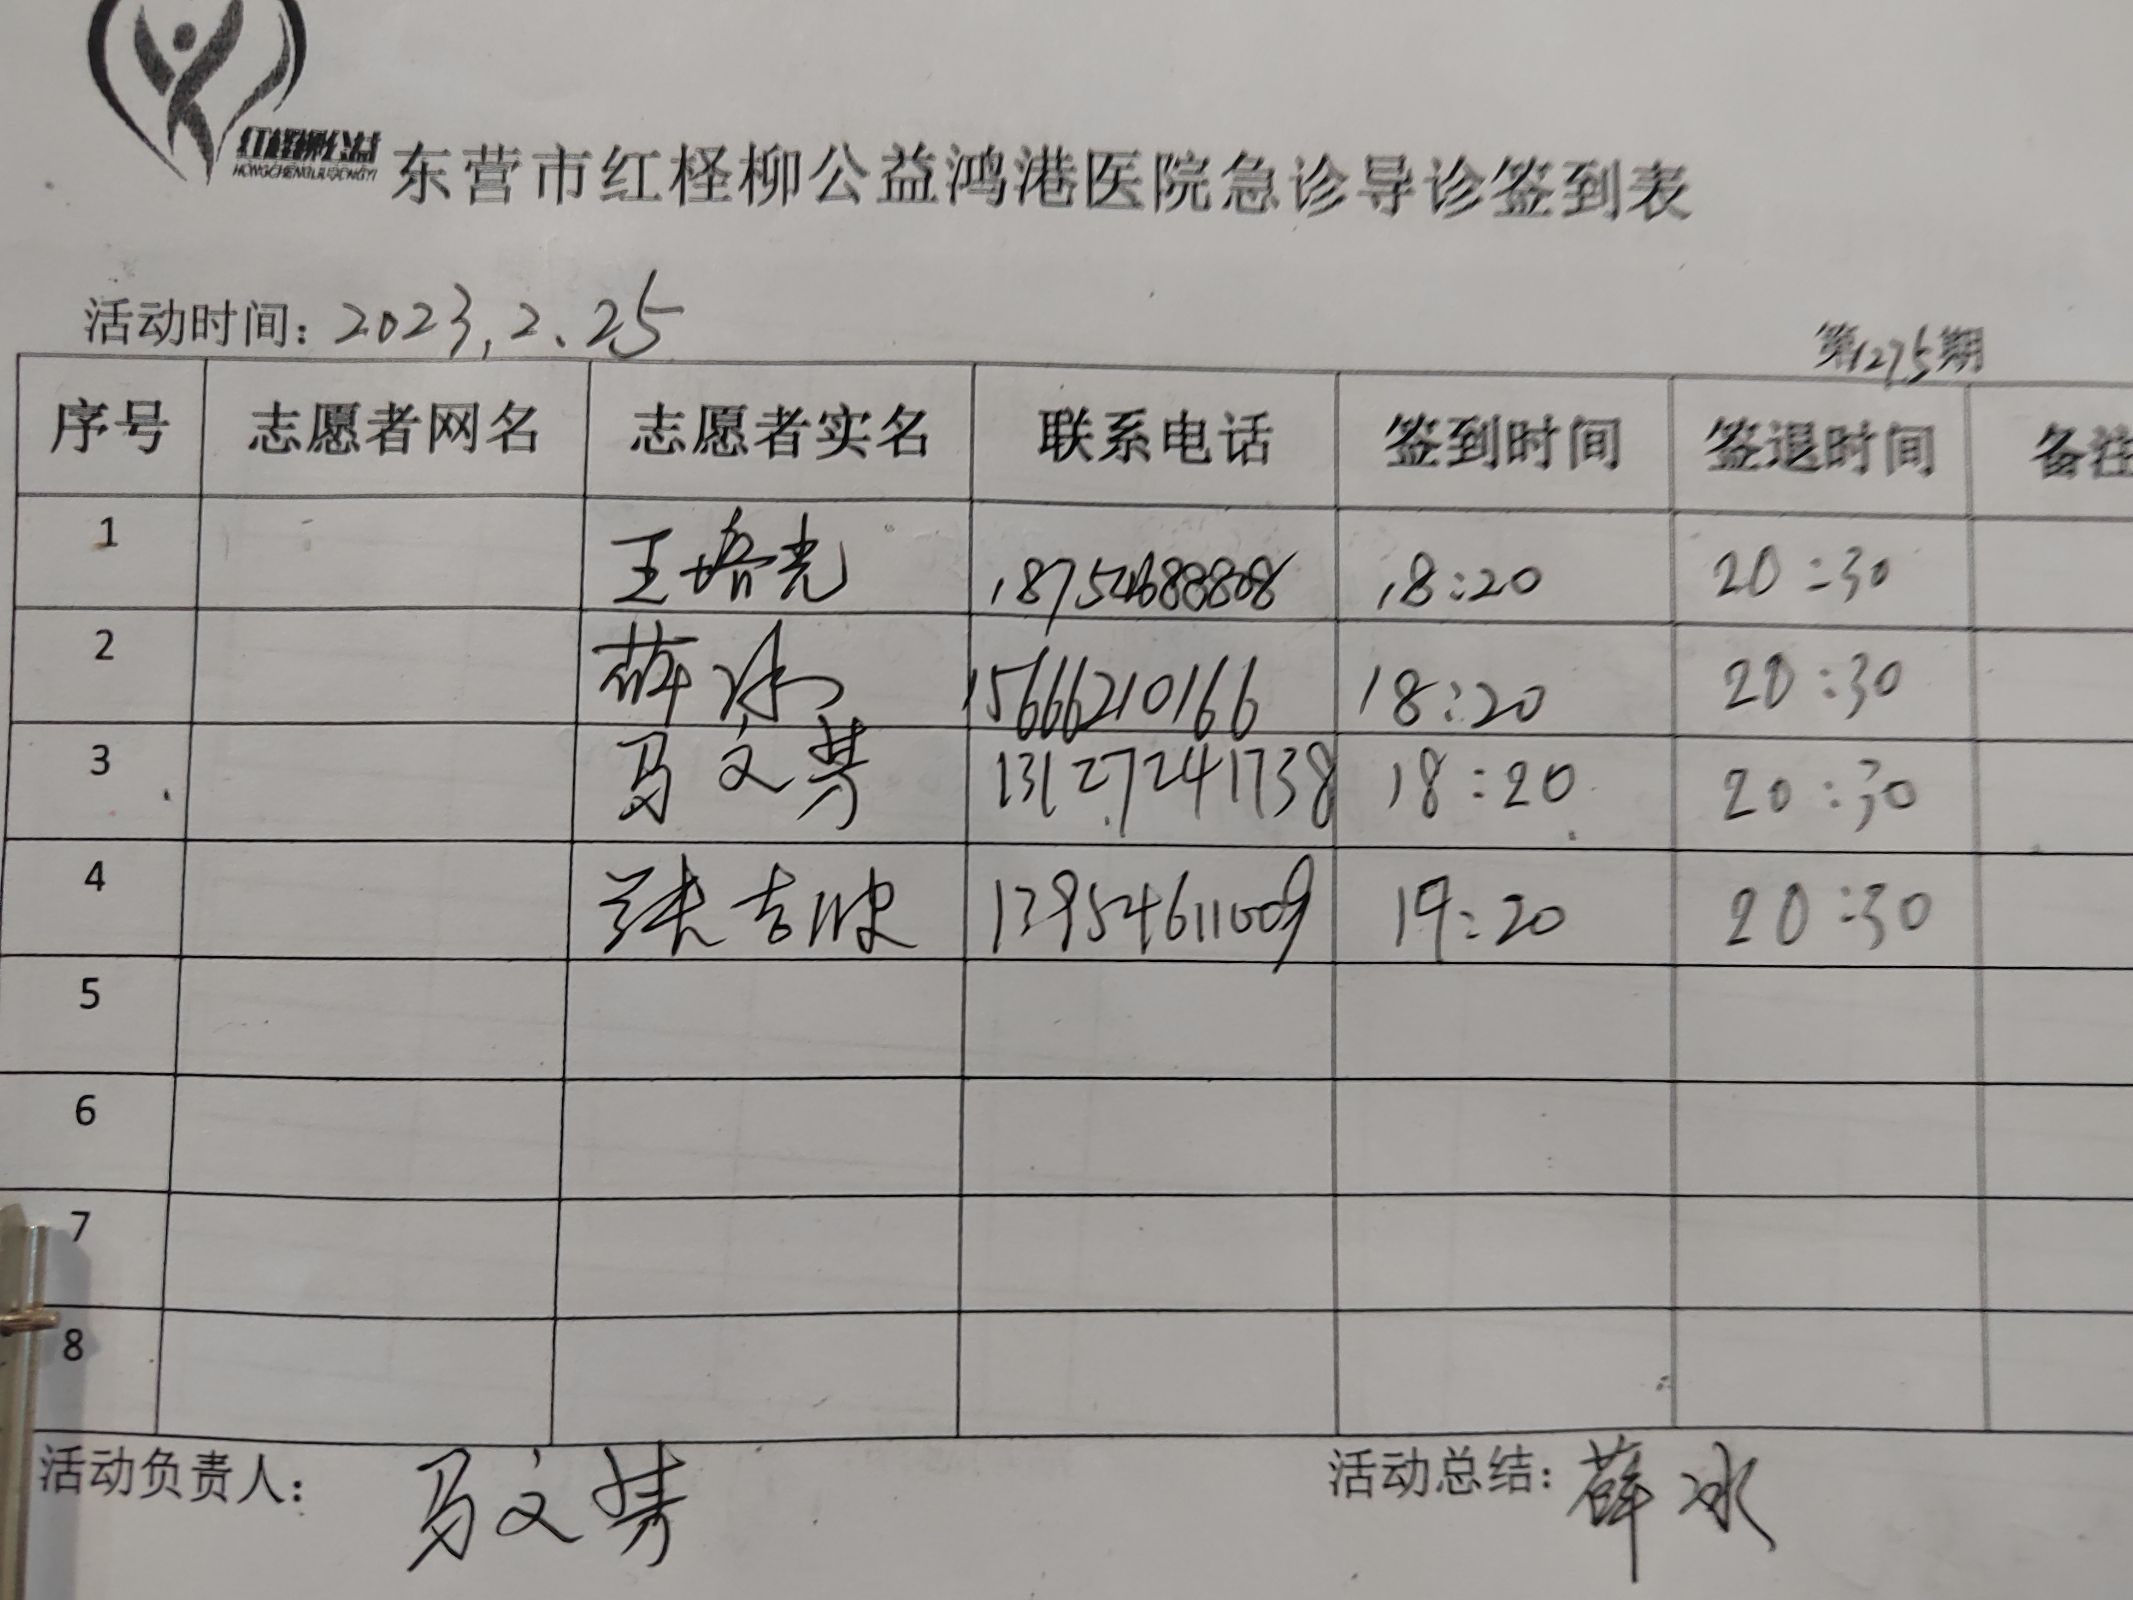 红柽柳公益
HONGCHENGLIUGONGYI
东营市红柽柳公益鸿港医院急诊导诊签到表
活动时间: 2023.2.25
第1275期
序号 志愿者网名 志愿者实名 联系电话 签到时间 签退时间 备注
1 王培光 18:20 20:30
2 薛冰 15666210166 18:20 20:30
3 马文芳 13127241738 18:20 20:30
4 张吉 13954611009 19:20 20:30
5
6
7
8
活动负责人: 马文芳 活动总结: 薛冰